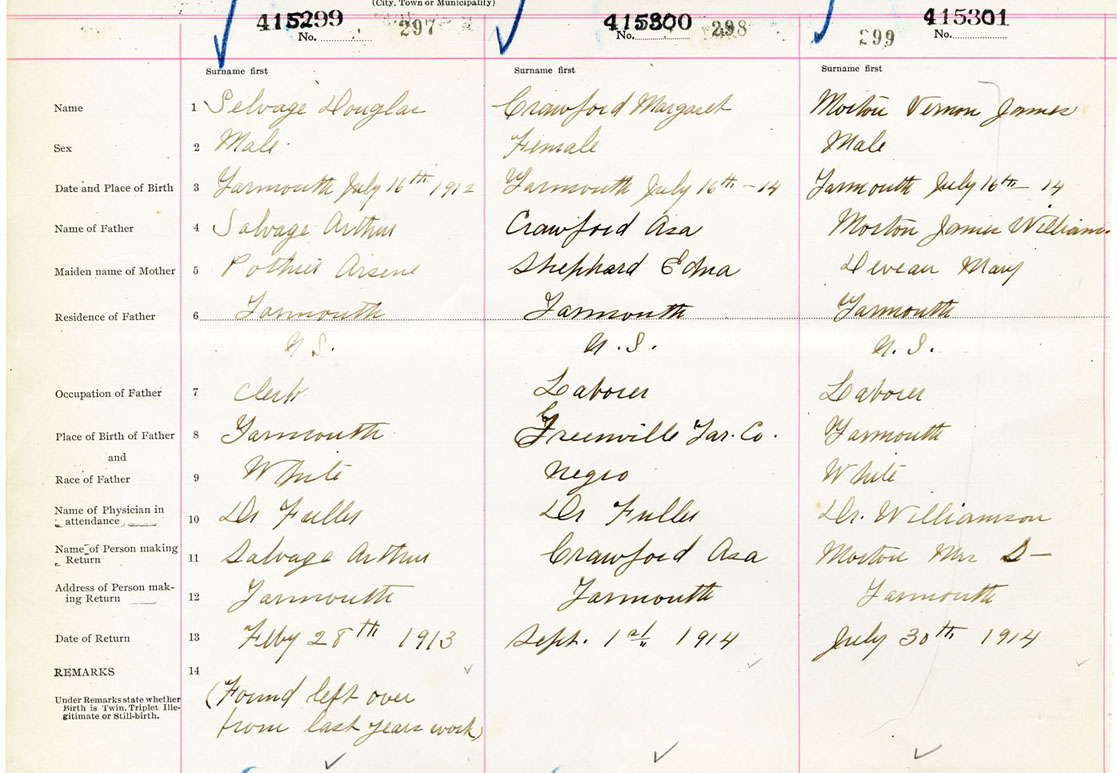 (City, Town or Municipality)
415299 415300 415301
No. 297 No. 298 No. 299
Surname first Surname first Surname first
Name 1 Selvage Douglas Crawford Margaret Morton Vernon James
Sex 2 Male Female Male
Date and Place of Birth 3 Yarmouth July 16th 1912 Yarmouth July 16th - 14 Yarmouth July 16th - 14
Name of Father 4 Salvage Arthur Crawford Asa Morton James William
Maiden name of Mother 5 Pothier Arsene Shephard Edna Deveau Mary
Residence of Father 6 Yarmouth Yarmouth Yarmouth
N.S. N.S. N.S.
Occupation of Father 7 Clerk Laborer Laborer
Place of Birth of Father 8 Yarmouth Greenville Yar. Co. Yarmouth
and
Race of Father 9 White Negro White
Name of Physician in
attendance 10 Dr Fuller Dr Fuller Dr. Williamson
Name of Person making
Return 11 Salvage Arthur Crawford Asa Morton Mrs
Address of Person mak-
ing Return 12 Yarmouth Yarmouth Yarmouth
Date of Return 13 Feby 28th 1913 Sept. 1st 1914 July 30th 1914
REMARKS 14
Under Remarks state whether (Found left over
Birth is Twin, Triplet Ille-
gitimate or Still-birth. from last years work)